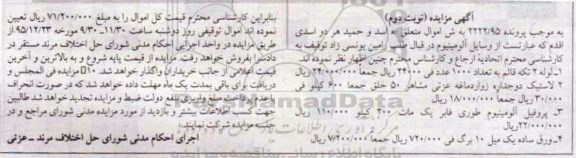 آگهی مزایده (نوبت دوم)
به موجب پرونده ۲۲۲۲/۹۵ به ش اموال متعلق به اسد و حمید هر دو اسدی
اقدم که عبارتست از وسایل آلومینیوم در قبال طلب رامین یونسی زاد توقیف به
کارشناسی محترم اتحادیه ارجاع و کارشناس محترم چنین اظهار نظر نموده اند.
۱-لوله ۲ تکه قائم به تعداد ۱۰۰۰ عدد فی ۲۴۰۰۰ ریال جمعا ۲۴/۰۰۰/۰۰۰ ریال
۲- لاستیک دوجداره زواردماغه عزتی مشاعر ۵۰ حلق جمعا ۶۰۰ کیلو فی
۳۰/۰۰۰ ریال جمعا ۱۸/۰۰۰/۰۰۰ ریال
۳- پروفیل آلومینیوم طوری فایر یک مات ۲۰۰ کیلو ۱۱۰/۰۰۰ ریال
۲۲/۰۰۰/۰۰۰ ریال
۴-ورق ساده یک میل ۱۰ برگ فی ۷۲۰/۰۰۰ ریال جمعا ۷/۲۰۰/۰۰۰ ریال
بنابراین کارشناسی محترم قیمت کل اموال را به مبلغ ۷۱/۲۰۰/۰۰۰ ریال تعیین
نموده اند اموال توقیفی روز دوشنبه ساعت ۱۱/۳۰- ۹/۳۰ مورخه ۹۵/۱۲/۲۳ از
طریق مزایده در واحد اجرایی احکام مدنی شورای حل اختلاف مرند مستقر در
دادسرا بفروش خواهد رفت. مزایده از قیمت پایه شروع و به بالاترین و آخرین
قیمت اعلامی از جانب خریداران واگذار خواهد شد. ۱۰٪ مزایده فی المجلس و
دریافت برای باقی بمدت یک ماه مهلت داده خواهد شد که در صورت انحراف
واحده و دریافت مبلغ واریزی بنفع دولت ضبط و مزایده تجدید خواهد شد طالبین
جهت کسب اطلاعات بیشتر و بازدید از مورد مزایده مدنی شورای مراجع و در
جلسه مزایده شرکت نمایند.
اجرای احکام مدنی شورای حل اختلاف مرند - عزتی